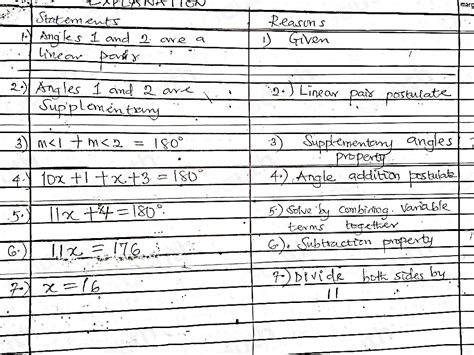 EXPLANATION
Statements Reasons
1.) Angles 1 and 2 are a 1) Given
linear pair
2.) Angles 1 and 2 are 2.) Linear pair postulate
Supplementary
3) m<1 + m<2 = 180° 3) Supplementary angles
property
4.) 10x + 1 + x + 3 = 180° 4.) Angle addition postulate
5.) 11x + 4 = 180° 5) Solve by combining variable
terms together
6.) 11x = 176 6). Subtraction property
7.) x = 16 7.) Divide both sides by
11